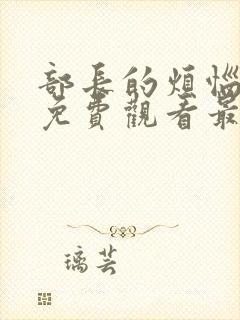 部長的煩惱
免費觀看最
璃芸